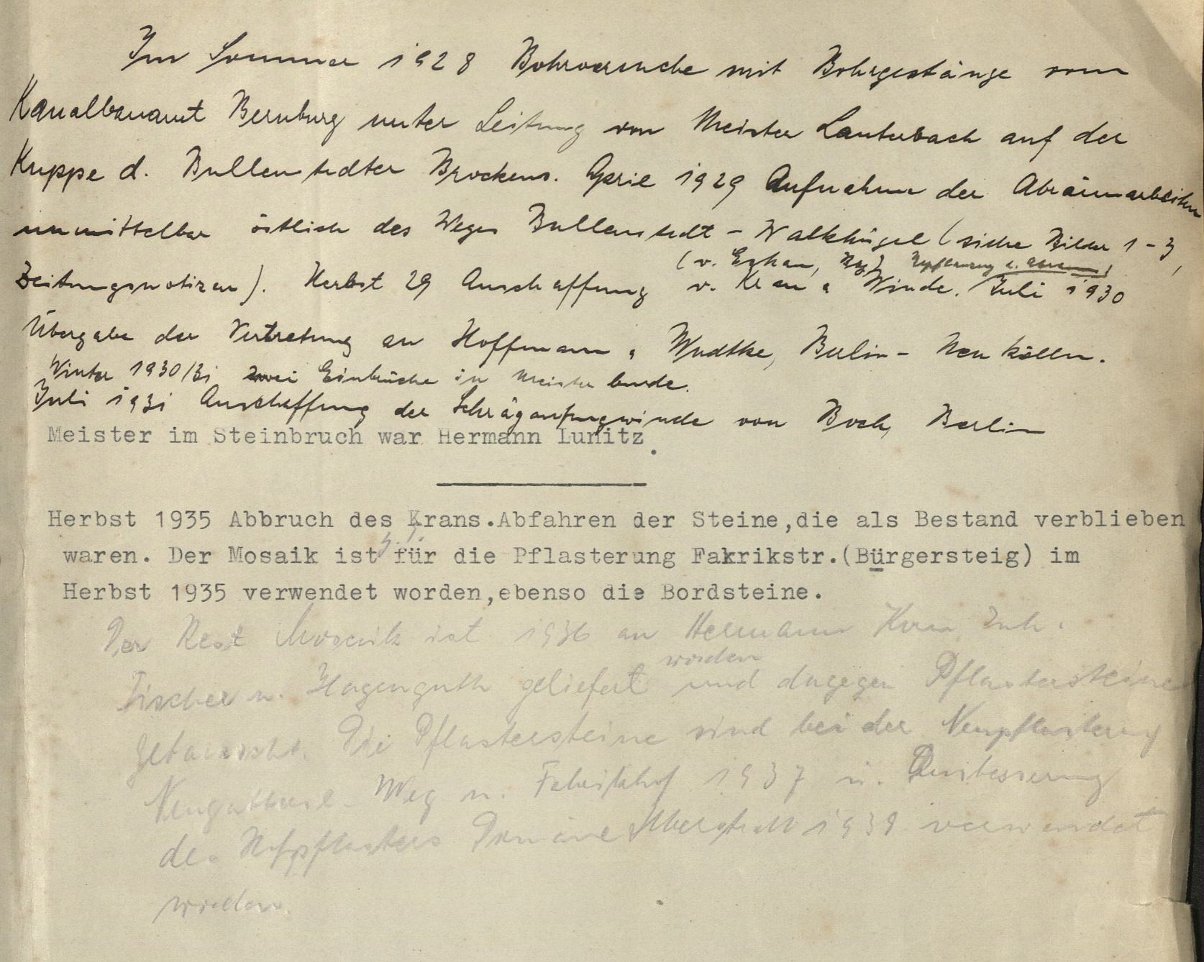 Im Sommer 1928 Bohrversuche mit Bohrgestänge vom
Kanalbauamt Bernburg unter Leitung von Meister Lauterbach auf der
Kuppe d. Bullenstedter Brockens. April 1929 Aufnahme der Abräumarbeiten
unmittelbar östlich des Weges Bullenstedt - Walkhügel (siehe Bilder 1-3,
Zeitungsnotizen). Herbst 29 Anschaffung v. Kran u Winde. Juli 1930
Übergabe der Vertretung an Hoffmann u Wudtke, Berlin - Neukölln.
Winter 1930/31 zwei Einbrüche in Meisterbude.
Juli 1931 Anschaffung der Schrägaufzugwinde von Boch, Berlin
Meister im Steinbruch war Hermann Lunitz.
Herbst 1935 Abbruch des Krans.Abfahren der Steine,die als Bestand verblieben
waren. Der Mosaik ist z.T. für die Pflasterung Fakrikstr.(Bürgersteig) im
Herbst 1935 verwendet worden,ebenso die Bordsteine.
Der Rest Mosaik ist 1936 an Hermann Inh.
Fischer u. Hagenguth geliefert worden und dagegen Pflastersteine
getauscht. Die Pflastersteine sind bei der Neupflasterung
Weg u. Fabrikhof 1937 u. Ausbesserung
des Hofpflasters Domäne 1939 verwendet
worden.